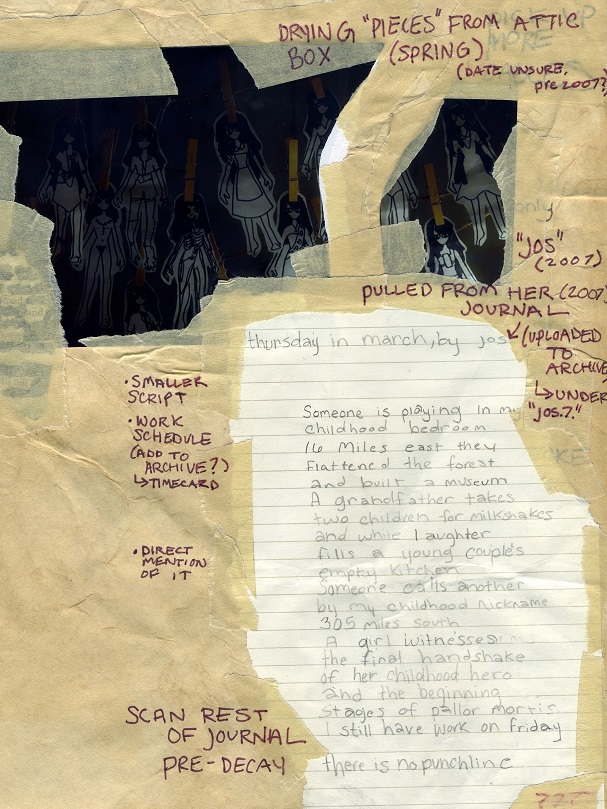 DRYING "PIECES" FROM ATTIC
BOX (SPRING)
(DATE UNSURE,
pre 2007?)
only
"JOS"
(2007)
PULLED FROM HER (2007)
JOURNAL
(UPLOADED
TO
ARCHIVE
↳ UNDER
"JOS.7."
thursday in march, by jos
• SMALLER
SCRIPT
• WORK
SCHEDULE
(ADD TO
ARCHIVE?)
↳ TIMECARD
• DIRECT
MENTION
OF IT
Someone is playing in my
childhood bedroom
16 Miles east they
flattened the forest
and built a museum
A grandfather takes
two children for milkshakes
and while laughter
fills a young couple's
empty kitchen
Someone calls another
by my childhood nickname
305 miles south
A girl witnesses
the final handshake
of her childhood hero
and the beginning
stages of pallor morris
I still have work on friday
there is no punchline
SCAN REST
OF JOURNAL
PRE-DECAY